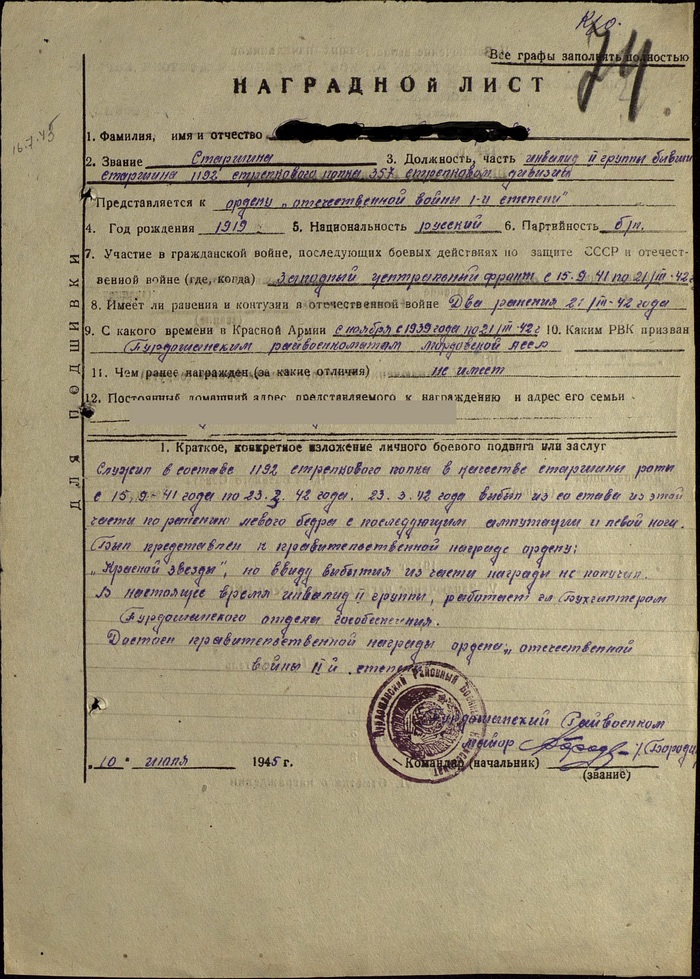 Кро.
74
Все графы заполнять полностью
НАГРАДНОЙ ЛИСТ
16.7.45
1. Фамилия, имя и отчество
2. Звание Старшина 3. Должность, часть инвалид II группы бывши
старшина 1192 стрелкового полка 357 стрелковой дивизии
Представляется к ордену „отечественной войны I-й степени"
4. Год рождения 1919 5. Национальность русский 6. Партийность б/п.
7. Участие в гражданской войне, последующих боевых действиях по защите СССР и отечест-
венной войне (где, когда) Западный центральный фронт с 15.9.41 по 21/III-42 г
8. Имеет ли ранения и контузии в отечественной войне Два ранения 21/III-42 года
9. С какого времени в Красной Армии с ноября с 1939 года по 21/III-42 г 10. Каким РВК призван
Пурдошанским райвоенкоматам мордовской асср
11. Чем ранее награжден (за какие отличия) не имеет
12. Постоянный домашний адрес представляемого к награждению и адрес его семьи
ДЛЯ ПОДШИВКИ
1. Краткое, конкретное изложение личного боевого подвига или заслуг
Служил в составе 1192 стрелкового полка в качестве старшины роты
с 15.9-41 года по 23.3.42 года. 23.3.42 года выбыл из состава из этой
части по ранению левого бедра с последующим ампутации и левой ноги.
Был представлен к правительственной награде ордену:
„Красной звезды", но ввиду выбытия из части награды не получил.
В настоящее время инвалид II группы, работает гл бухгалтером
Пурдошанского отдела гособеспечения.
Достоен правительственной награды ордена „отечественной
войны II-й степени
Пурдошанский Районный Военный Комиссариат
Пурдошанский Райвоенком
майор /Бороди
Командир (начальник)
(звание)
„10" июля 1945 г.